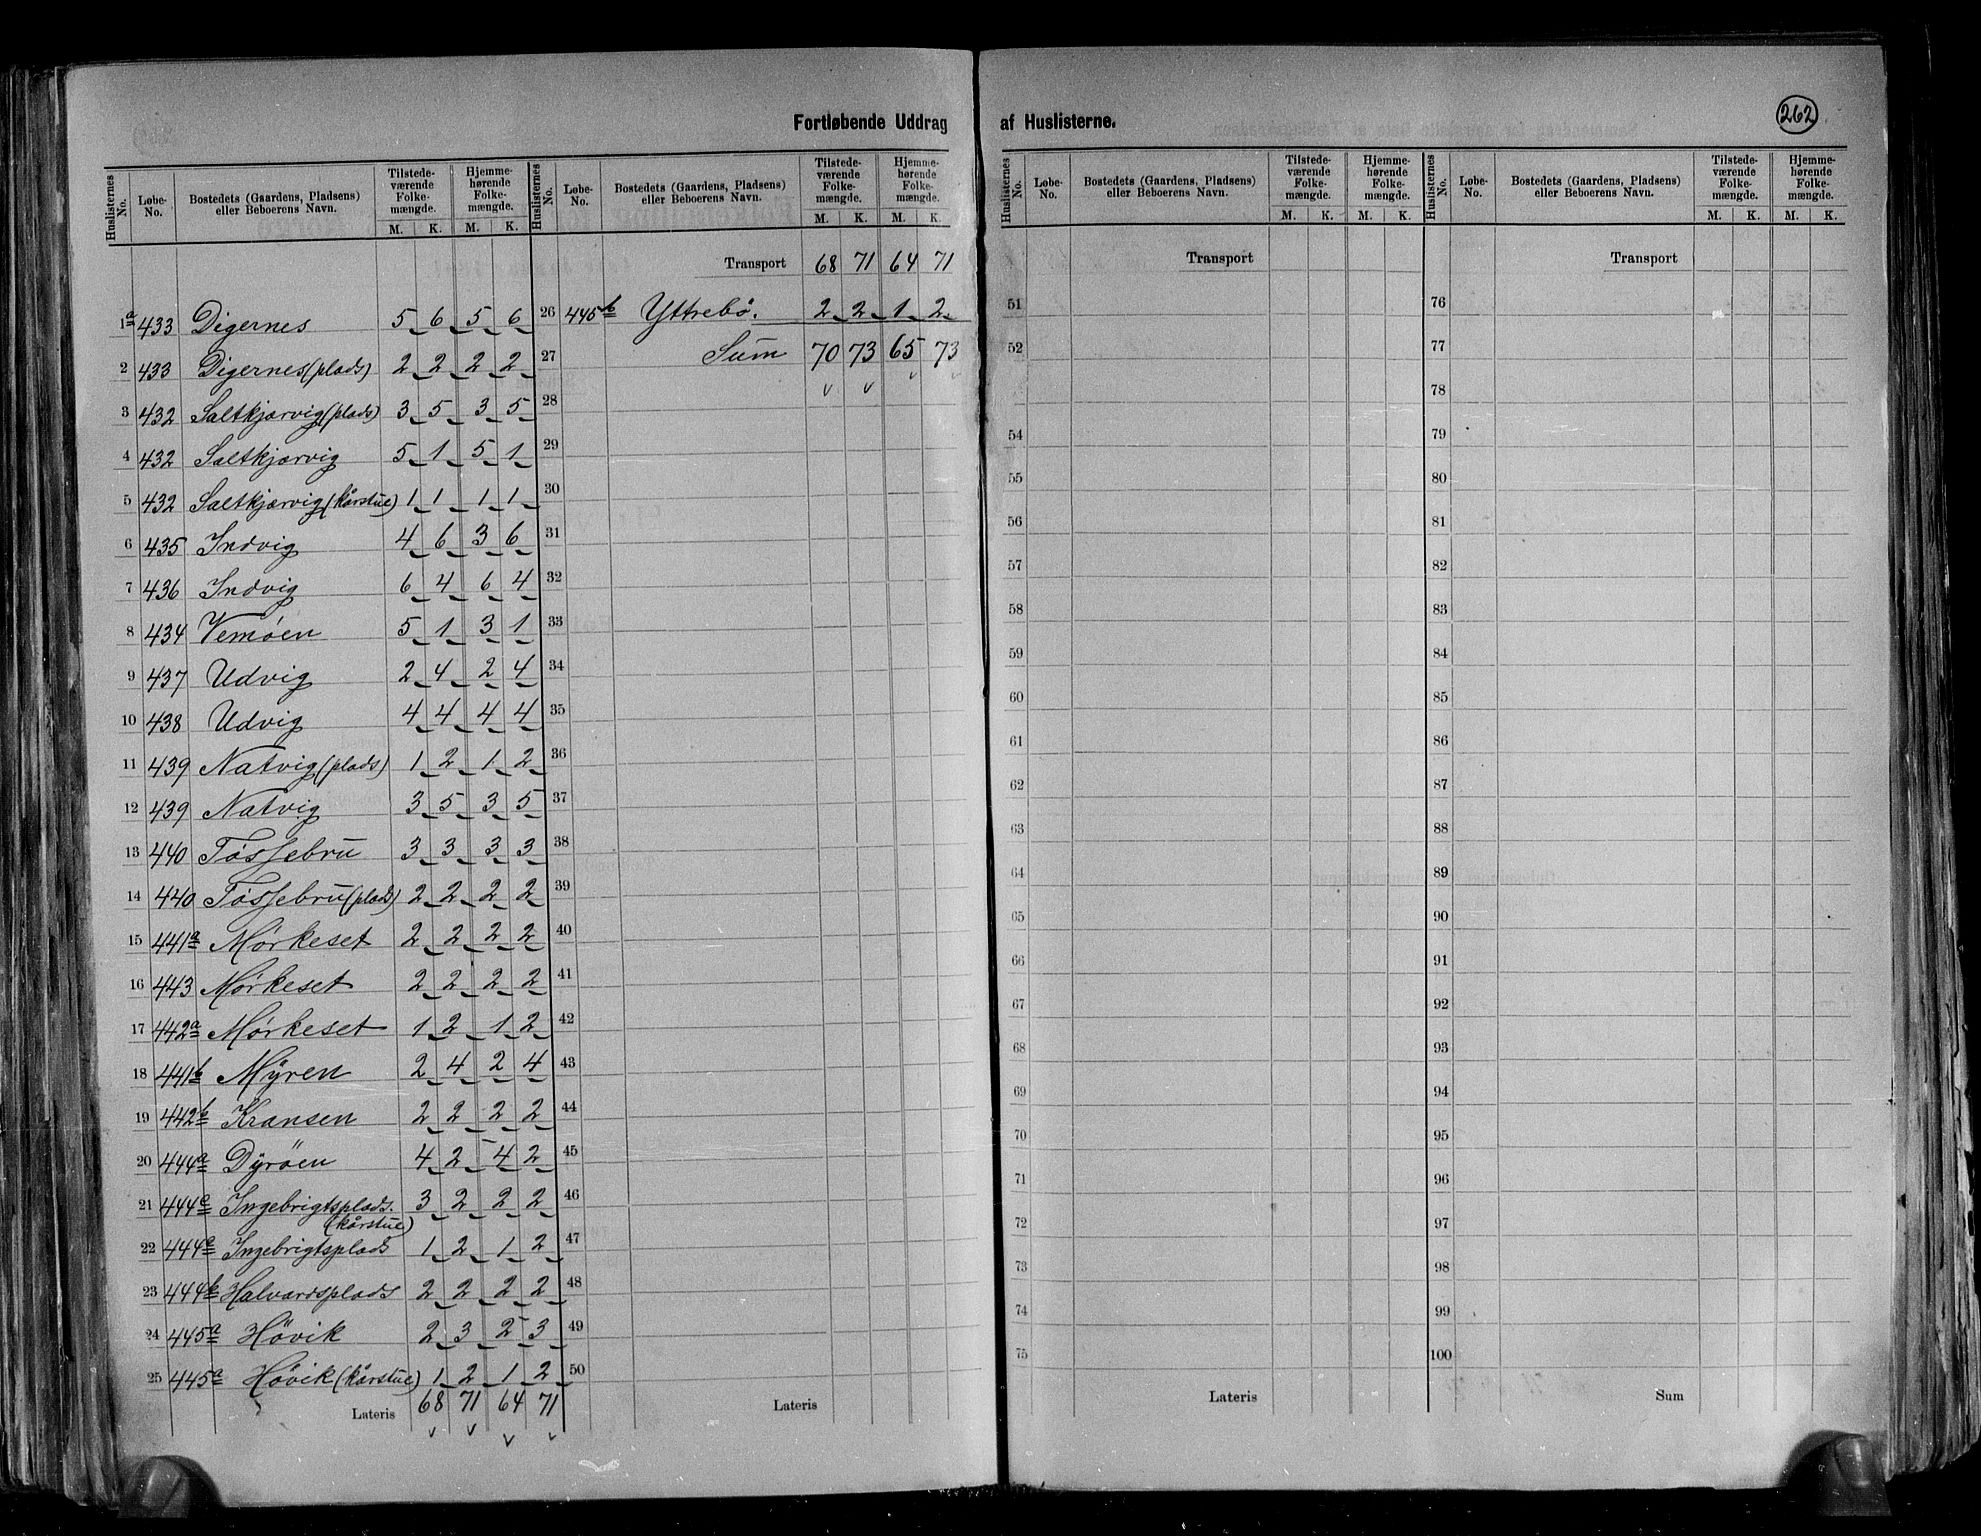 Fortløbende Uddrag af Huslisterne.
262
Huslisternes No. Løbe-No. Bostedets (Gaardens, Pladsens) eller Beboerens Navn. Tilstedeværende Folkemængde. M. K. Hjemmehørende Folkemængde. M. K.
1a 433 Digernes 5 6 5 6
2 433 Digernes (plads) 2 2 2 2
3 432 Saltkjærvig (plads) 3 5 3 5
4 432 Saltkjærvig 5 1 5 1
5 432 Saltkjærvig (kårstue) 1 1 1 1
6 435 Indvig 4 6 3 6
7 436 Indvig 6 4 6 4
8 434 Vemøen 5 1 3 1
9 437 Udvig 2 4 2 4
10 438 Udvig 4 4 4 4
11 439 Natvig (plads) 1 2 1 2
12 439 Natvig 3 5 3 5
13 440 Tøssebru 3 3 3 3
14 440 Tøssebru (plads) 2 2 2 2
15 441a Mørkeset 2 2 2 2
16 443 Mørkeset 2 2 2 2
17 442a Mørkeset 1 2 1 2
18 441b Myren 2 4 2 4
19 442b Kransen 2 2 2 2
20 444a Dyrøen 4 2 4 2
21 444c Ingebrigtsplads. 3 2 2 2
(kårstue)
22 444c Ingebrigtsplads 1 2 1 2
23 444b Halvardsplads 2 2 2 2
24 445a Høvik 2 3 2 3
25 445a Høvik (kårstue) 1 2 1 2
Lateris 68 71 64 71
Huslisternes No. Løbe-No. Bostedets (Gaardens, Pladsens) eller Beboerens Navn. Tilstedeværende Folkemængde. M. K. Hjemmehørende Folkemængde. M. K.
Transport 68 71 64 71
26 445b Yttrebø. 2 2 1 2
27 Sum 70 73 65 73
28
29
30
31
32
33
34
35
36
37
38
39
40
41
42
43
44
45
46
47
48
49
50
Lateris
Huslisternes No. Løbe-No. Bostedets (Gaardens, Pladsens) eller Beboerens Navn. Tilstedeværende Folkemængde. M. K. Hjemmehørende Folkemængde. M. K.
Transport
51
52
54
55
56
57
58
59
60
61
62
63
64
65
66
67
68
69
70
71
72
73
74
75
Lateris
Huslisternes No. Løbe-No. Bostedets (Gaardens, Pladsens) eller Beboerens Navn. Tilstedeværende Folkemængde. M. K. Hjemmehørende Folkemængde. M. K.
Transport
76
77
78
79
80
81
82
83
84
85
86
87
88
89
90
91
92
93
94
95
96
97
98
99
100
Sum